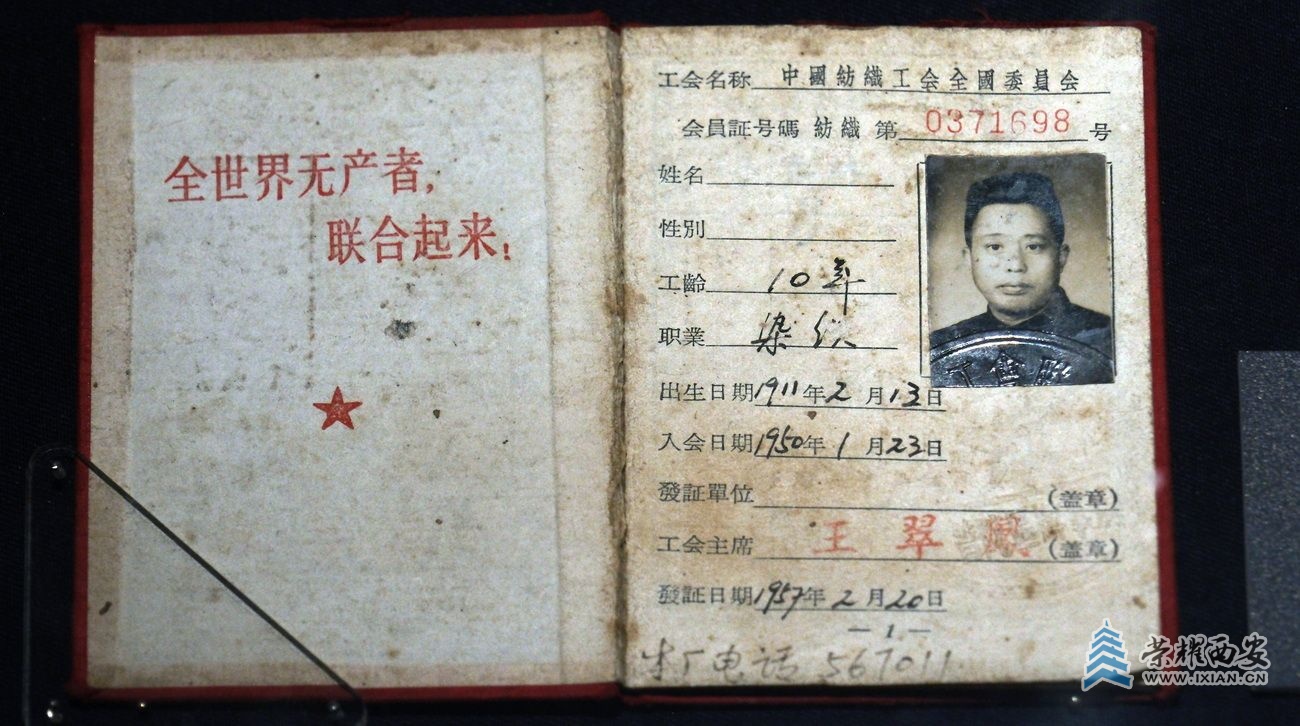 全世界无产者,
联合起来!
工会名称 中國紡織工会全國委員会
会員証号碼 紡織 第 0371698 号
姓名
性別
工齡 10年
职業 染织
出生日期 1911年2月13日
入会日期 1950年1月23日
發証單位 (盖章)
工会主席 王翠鳳 (盖章)
發証日期 1957年2月20日
—1—
电话 567011
工會聯
荣耀西安
WWW.IXIAN.CN